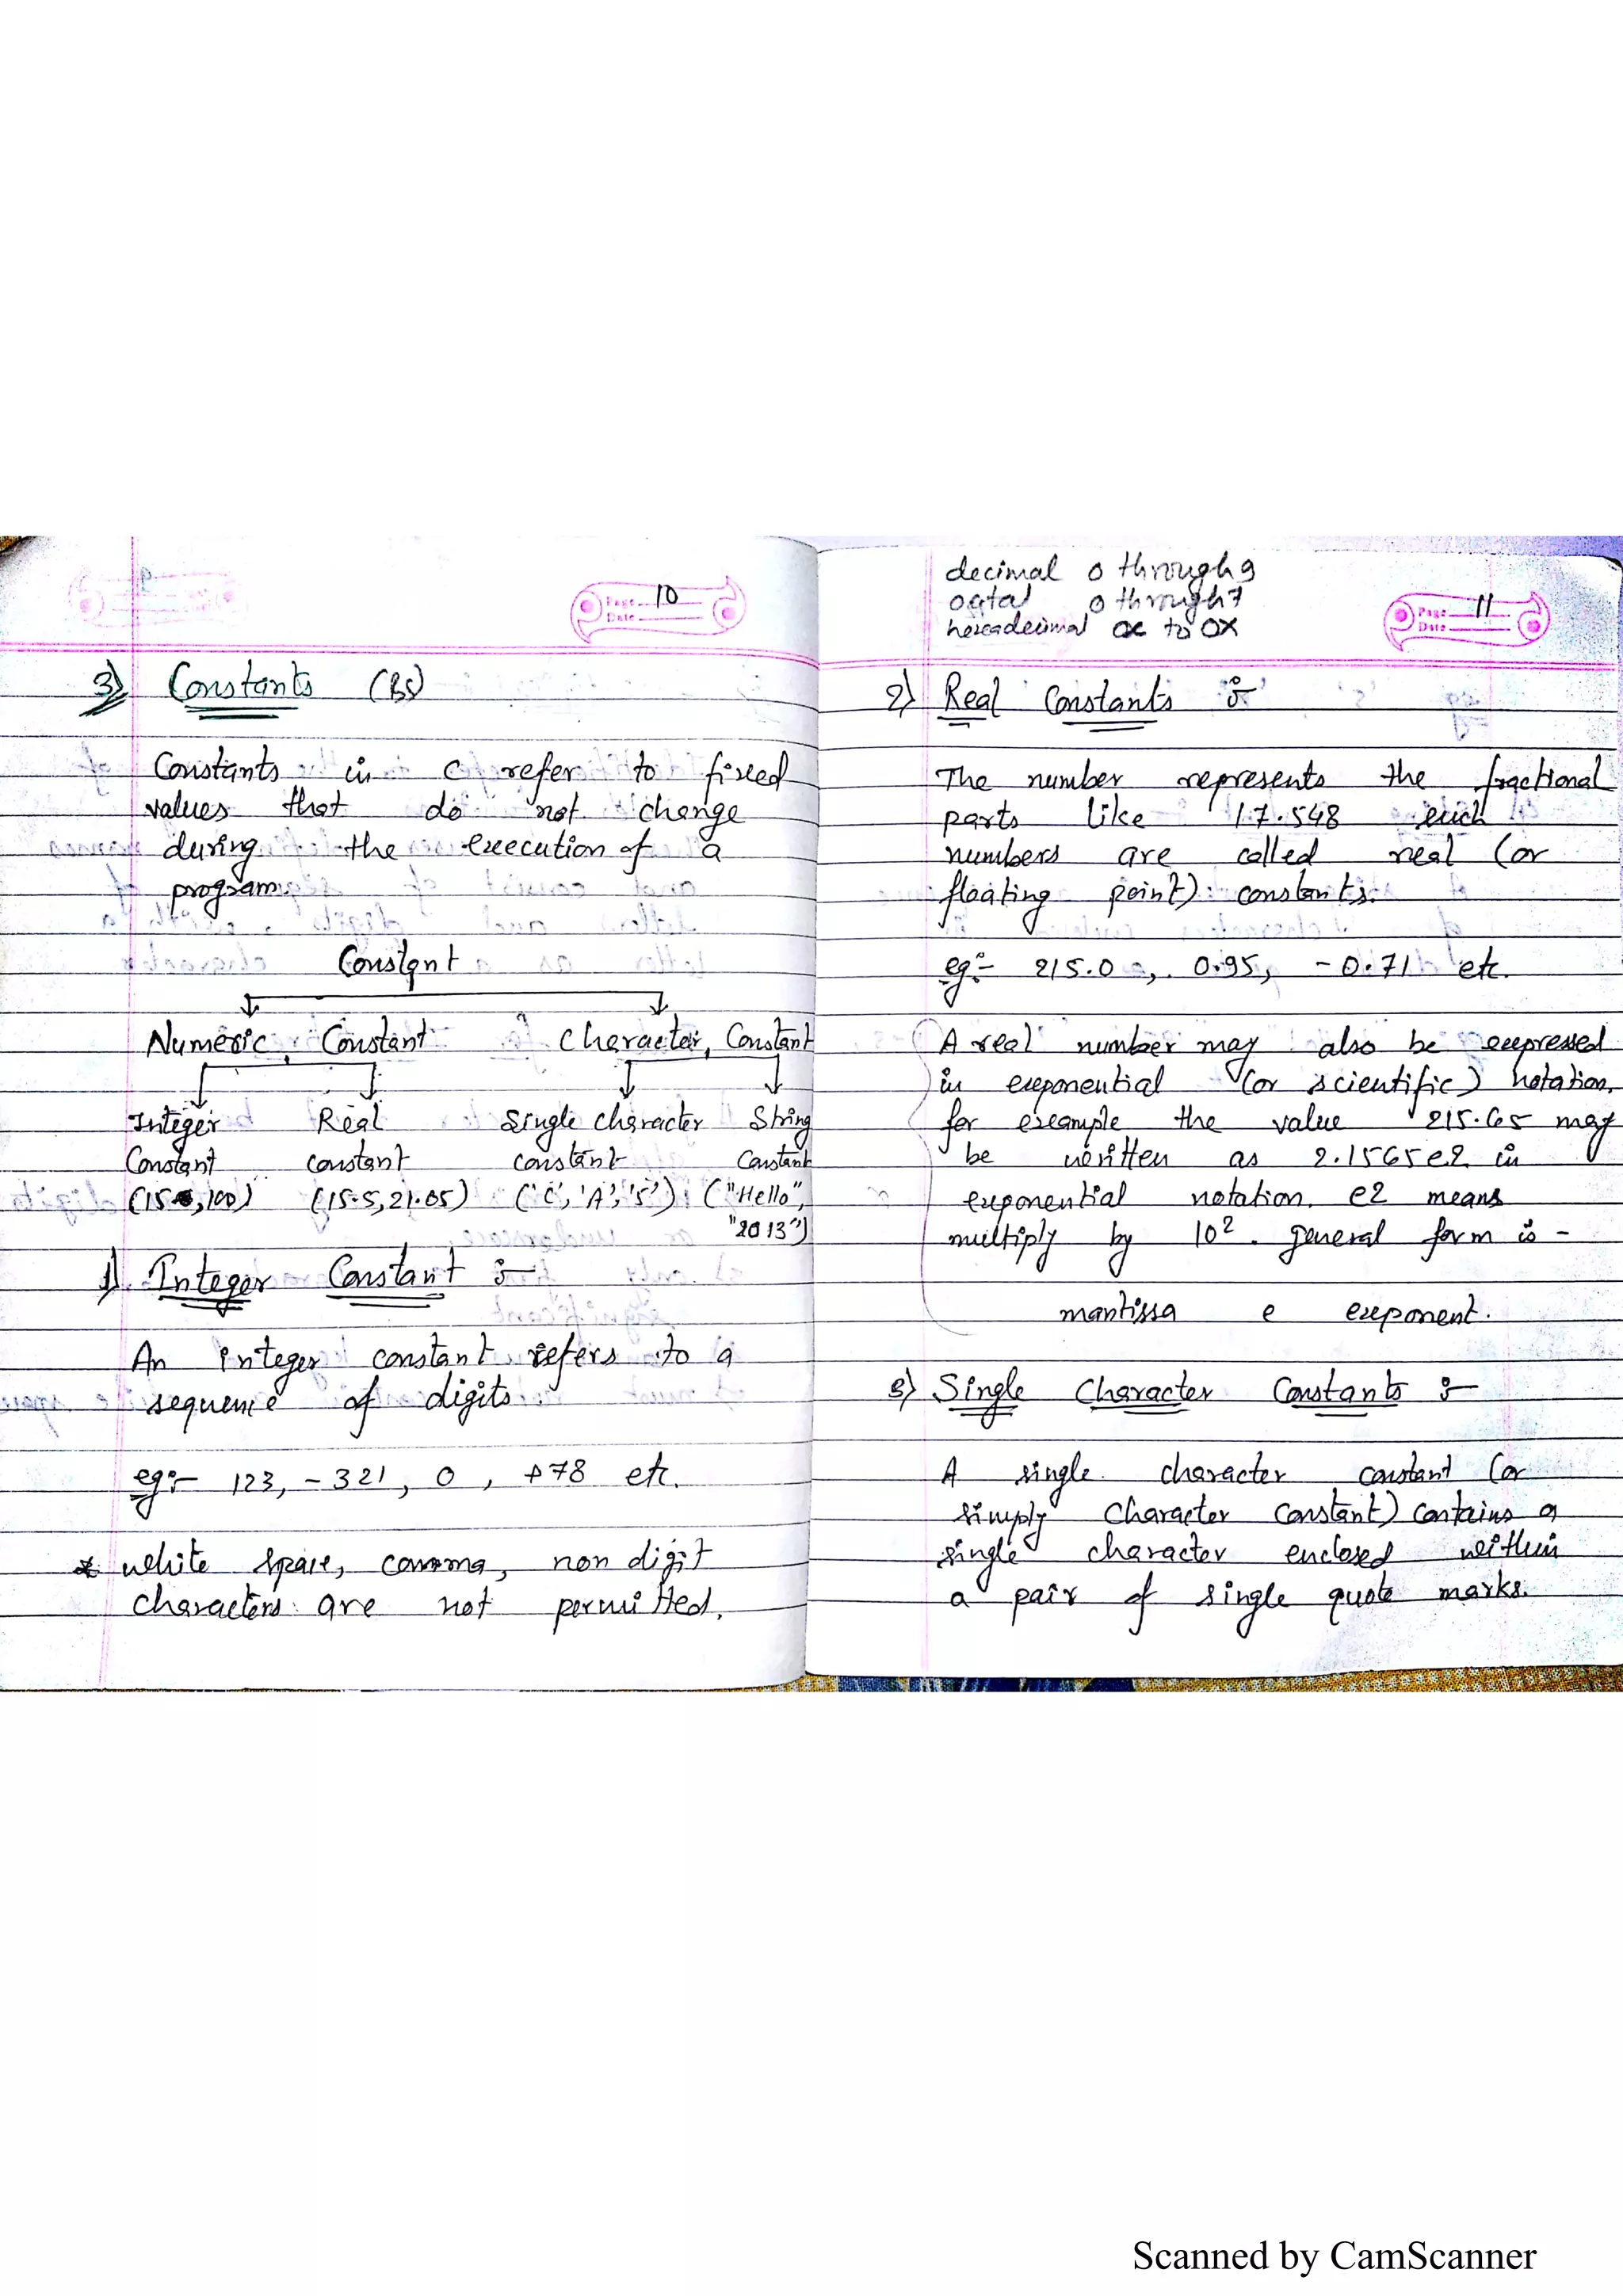 Page 10
Date
3) Constants (B5)
Constants in C refer to fixed
values that do not change
during the execution of a
program.
Constant
Numeric Constant Character Constant
Integer Real Single character String
Constant constant constant Constant
(15, 100) (15.5, 21.05) ('C', 'A', '5') ("Hello",
"2013")
1) Integer Constant :-
An integer constant refers to a
sequence of digits.
eg:- 123, -321, 0, +78 etc.
* white space, comma, non digit
characters are not permitted.
decimal 0 through 9
octal 0 through 7
hexadecimal 0x to 0X
Page 11
Date
2) Real Constants :-
The number represents the fractional
parts like 17.548 such
numbers are called real (or
floating point) constants.
eg:- 215.0, 0.95, -0.71 etc.
A real number may also be expressed
in exponential (or scientific) notation.
for example the value 215.65 may
be written as 2.1565e2 in
exponential notation. e2 means
multiply by 10². general form is -
mantissa e exponent.
3) Single Character Constants :-
A single character constant (or
simply character constant) contains a
single character enclosed within
a pair of single quote marks.
Scanned by CamScanner